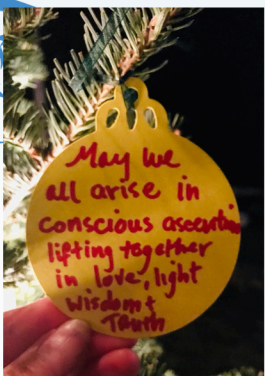 May we
all arise in
conscious ascension
lifting together
in love, light
wisdom +
Truth